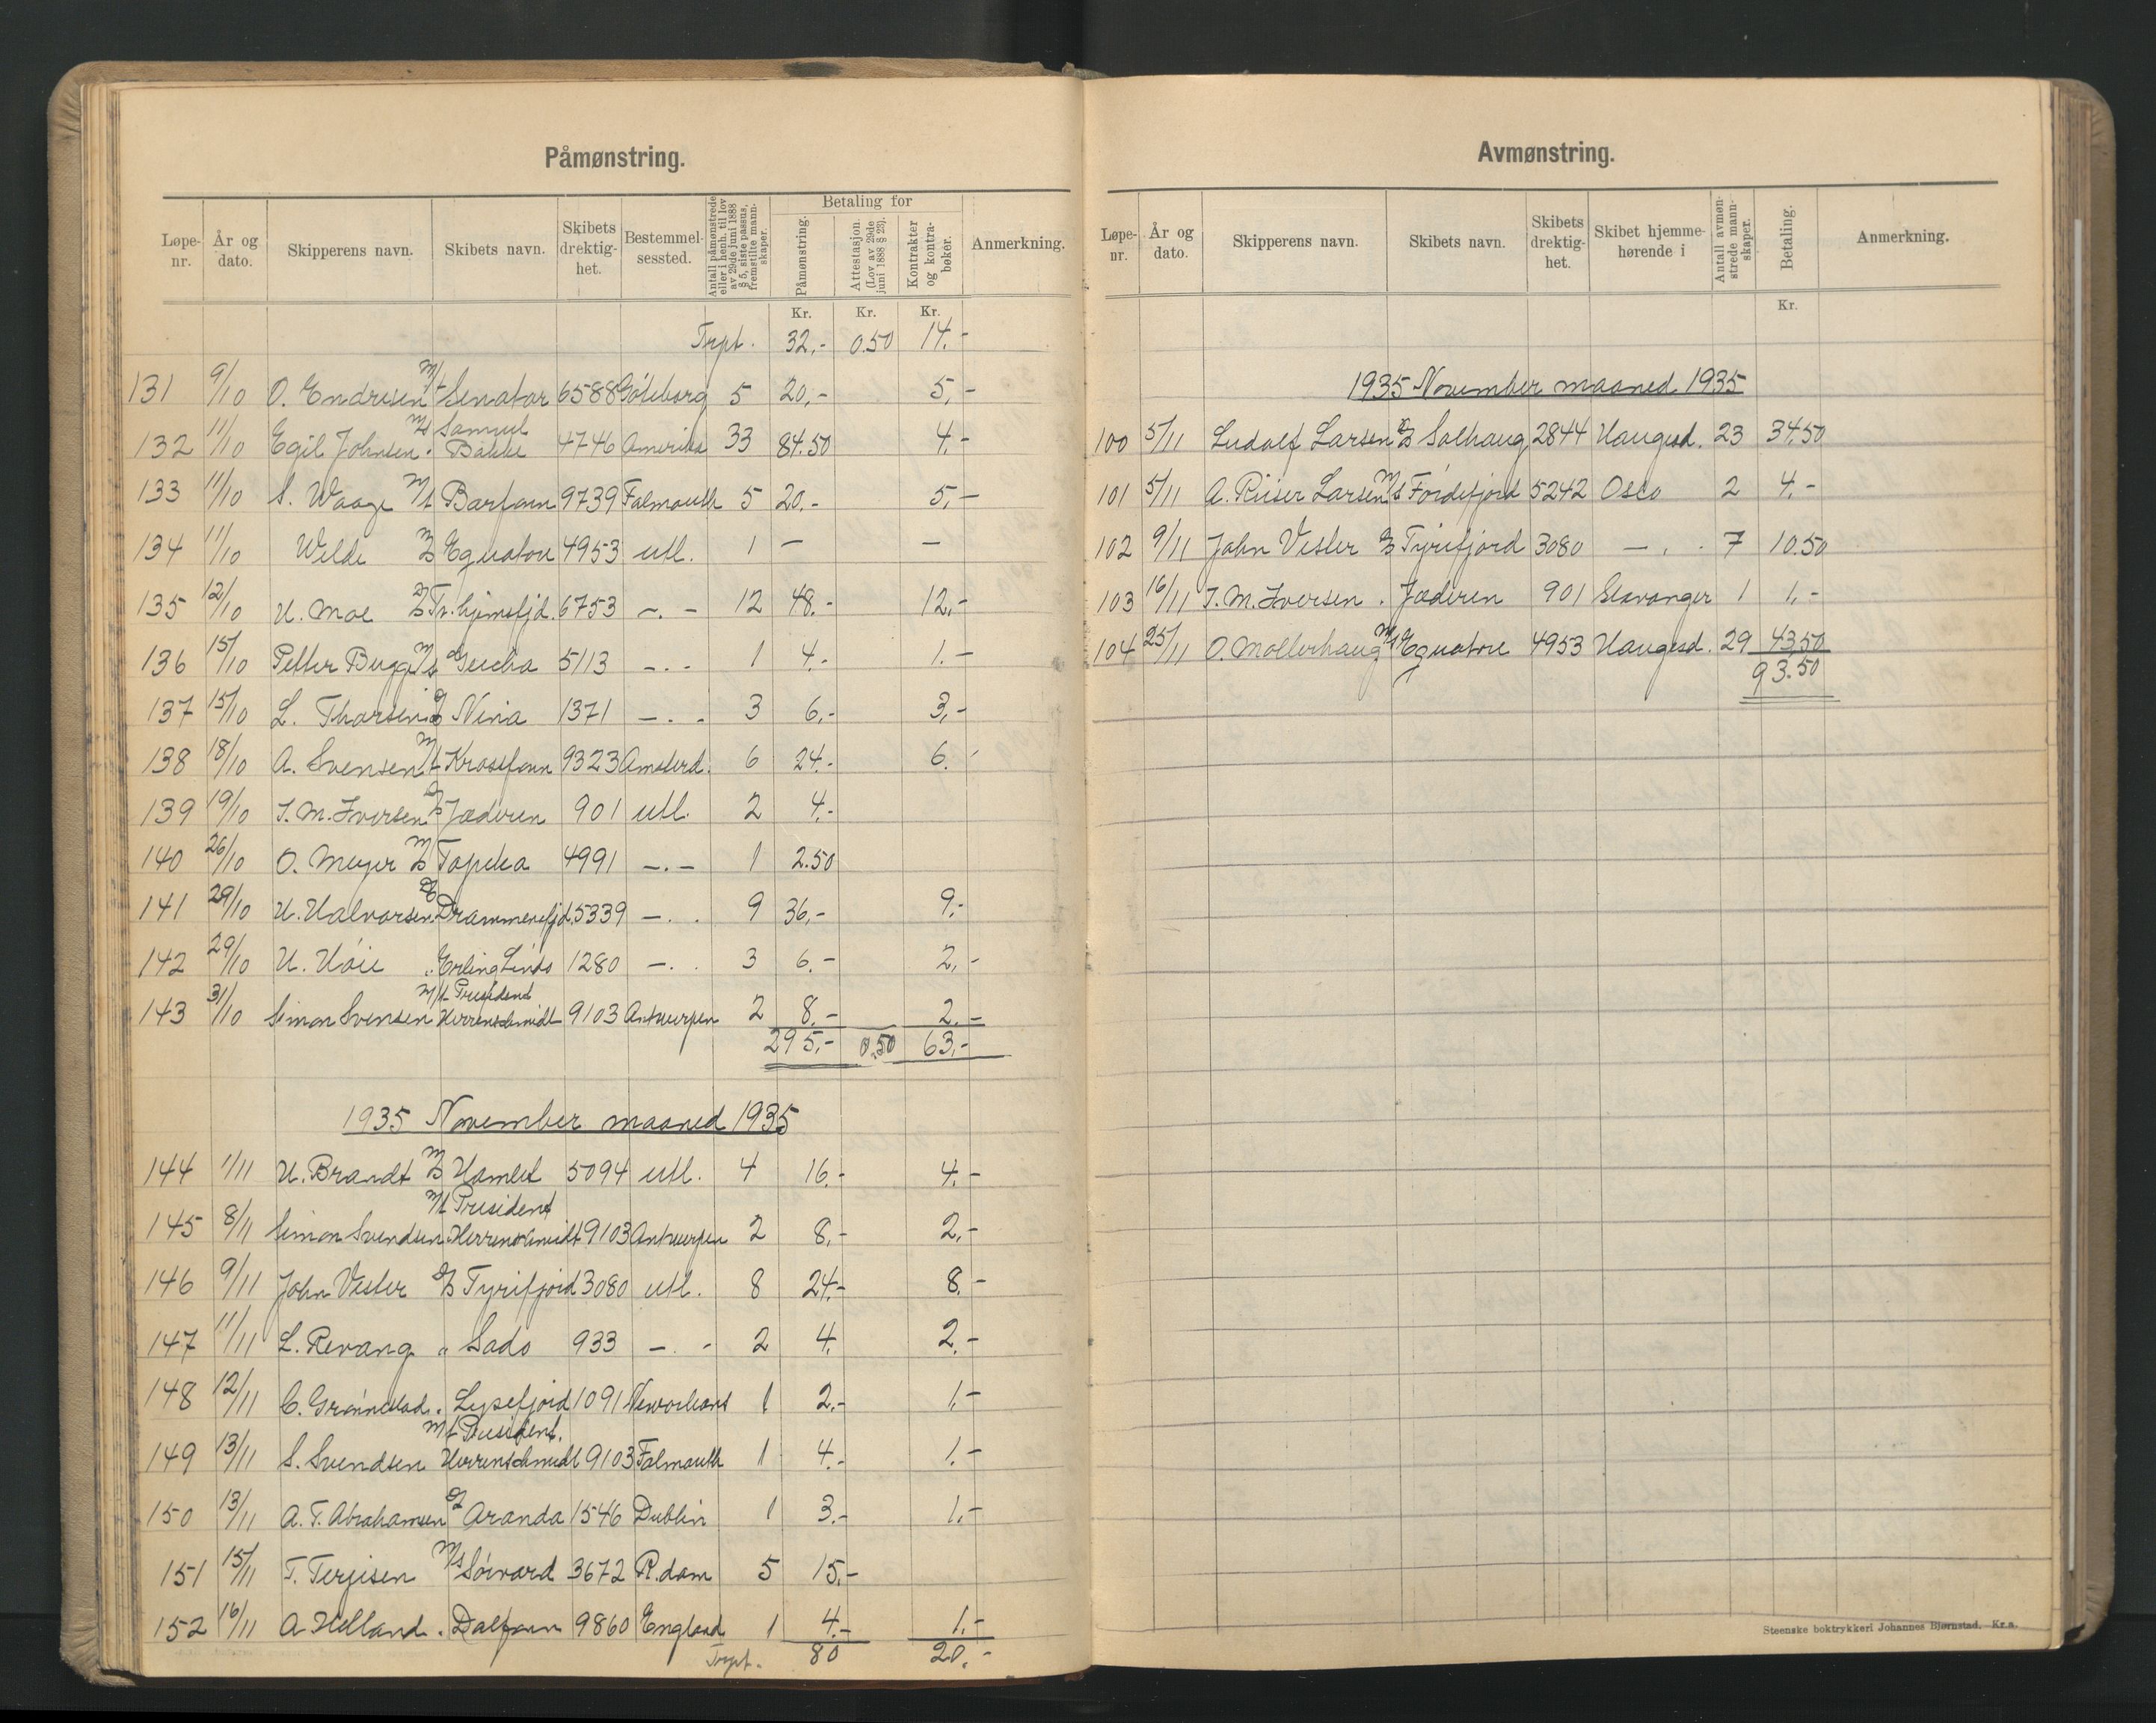 Påmønstring.
Løpe-nr. År og dato. Skipperens navn. Skibets navn. Skibets drektig-het. Bestemmel-sessted. Antall påmønstrede eller i henh. til lov av 29de juni 1888 § 5, siste passus, fremstilte mann-skaper. Betaling for Påmønstring. Attestasjon. (Lov av 29de juni 1888 § 23). Kontrakter og kontra-bøker. Anmerkning.
Kr. Kr. Kr.
Trpt. 32,- 0.50 14.-
131 9/10 O. Endresen M/t Senator 6588 Göteborg 5 20,- 5,-
132 11/10 Egil Johnsen M/s Samuel Bakke 4746 Amerika 33 84.50 4.-
133 11/10 S. Waage M/t Barfonn 9739 Falmouth 5 20.- 5,-
134 11/10 Wilde M/S Eguatore 4953 utl. 1 — —
135 12/10 H. Moe D/S Tr.hjemsfjd. 6753 -.- 12 48.- 12,-
136 15/10 Petter Bugge M/s Geisha 5113 -.- 1 4.- 1.-
137 15/10 L. Thorsen D/S Nina 1371 -.- 3 6,- 3,-
138 18/10 A. Svensen M/t Krossfonn 9323 Amsterd. 6 24.- 6.-
139 19/10 T. M. Iversen D/S Jæderen 901 utl. 2 4.-
140 26/10 O. Meyer M/S Topeka 4991 -.- 1 2.50
141 29/10 H. Halvorsen D/S Drammensfjd. 5339 -.- 9 36,- 9,-
142 29/10 H. Höie " Erling Lindö 1280 -.- 3 6.- 2,-
143 31/10 Simon Svensen M/t President Herrenschmidt 9103 Antwerpen 2 8.- 2.-
295,- 0.50 63,-
1935 November maaned 1935
144 1/11 H. Brandt M/S Hamlet 5094 utl. 4 16.- 4.-
145 8/11 Simon Svendsen M/t President Herrenschmidt 9103 Antwerpen 2 8,- 2,-
146 9/11 John Vesler D/S Tyrifjord 3080 utl. 8 24.- 8.-
147 11/11 L. Revang " Sado 933 -.- 2 4. 2.-
148 12/11 C. Grönnestad " Lysefjord 1091 Neworleans 1 2.- 1,-
149 13/11 S. Svendsen M/t President. Herrenschmidt 9103 Falmouth 1 4.- 1.-
150 13/11 A. T. Abrahamsen D/S Aranda 1546 Dublin 1 3.- 1,-
151 15/11 T. Terjesen M/s Sörvard 3672 R.dam 5 15,-
152 16/11 A Helland " Dalfonn 9860 England 1 4.- 1.-
Trpt. 80 20.-
Avmønstring.
Løpe-nr. År og dato. Skipperens navn. Skibets navn. Skibets drektig-het. Skibet hjemme-hørende i Antall avmøn-strede mann-skaper. Betaling. Anmerkning.
Kr.
1935 November maaned 1935
100 5/11 Ludolf Larsen D/S Solhaug 2844 Haugsd. 23 34.50
101 5/11 A. Riiser Larsen M/s Fördefjord 5242 Oslo 2 4.-
102 9/11 John Vesler D/S Tyrifjord 3080 -.- 7 10.50
103 16/11 T. M. Iversen " Jæderen 901 Stavanger 1 1,-
104 25/11 O. Mollerhaug M/s Eguatore 4953 Haugesd. 29 43.50
93.50
Steenske boktrykkeri Johannes Bjørnstad. Kr.a.